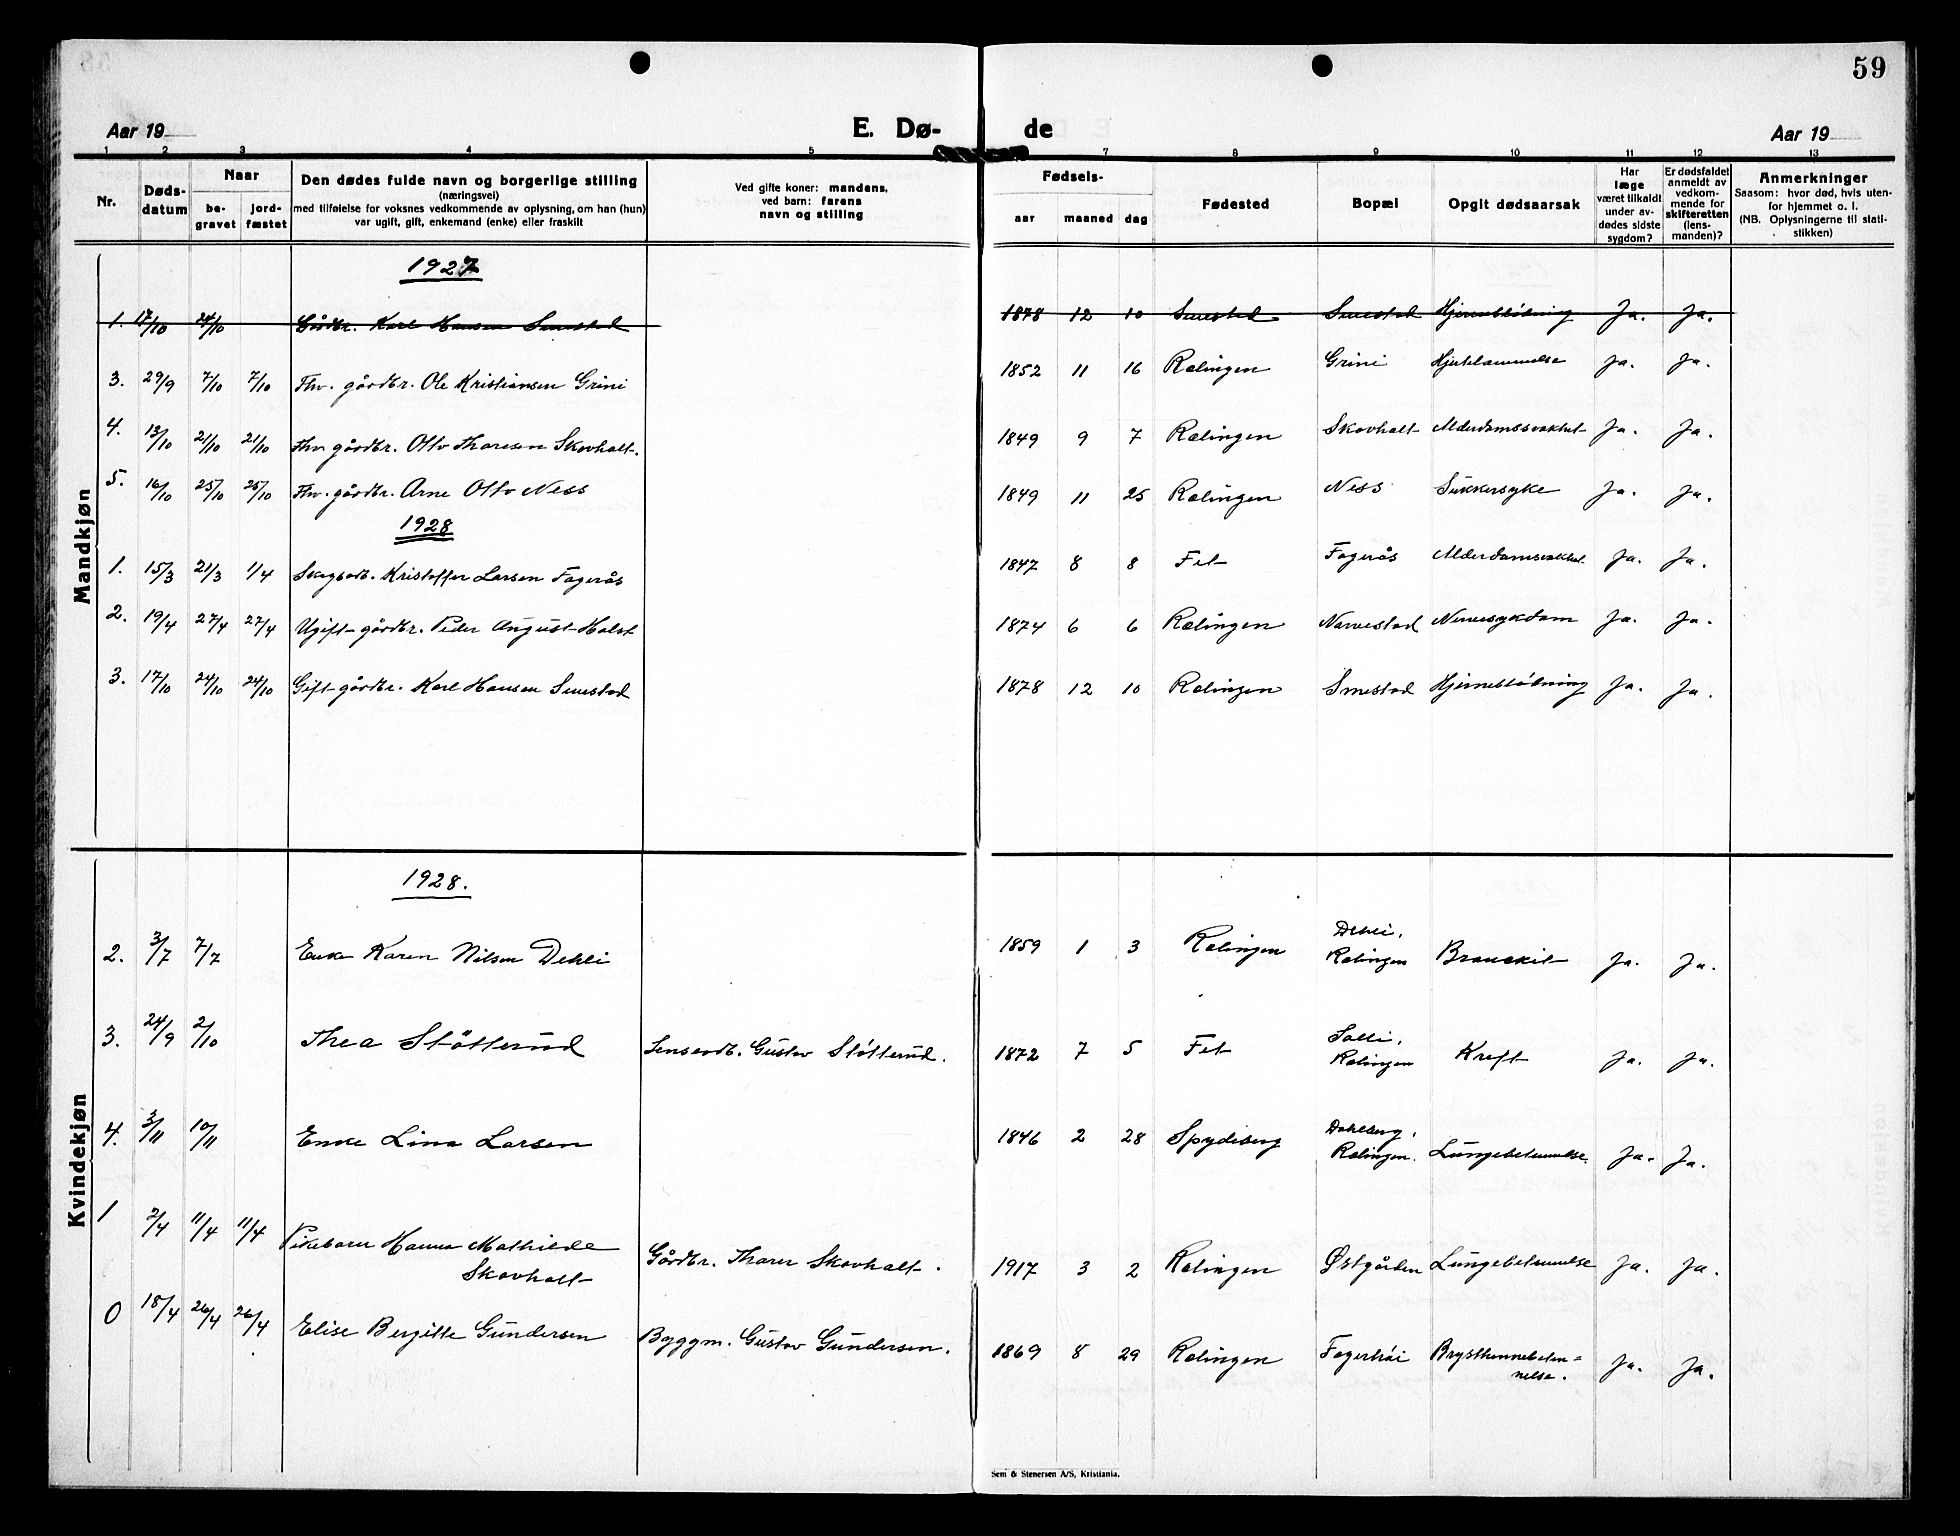 59
Aar 19
E. Dø-
de
Aar 19
1 2 3 4 5 7 8 9 10 11 12 13
Nr.
Døds-
datum
Naar
be-
gravet
jord-
fæstet
Den dødes fulde navn og borgerlige stilling
(næringsvei)
med tilføielse for voksnes vedkommende av oplysning, om han (hun)
var ugift, gift, enkemand (enke) eller fraskilt
Ved gifte koner: mandens,
ved barn: farens
navn og stilling
Fødsels-
aar maaned dag
Fødested
Bopæl
Opgit dødsaarsak
Har
læge
været tilkaldt
under av-
dødes sidste
sygdom?
Er dødsfaldet
anmeldt av
vedkom-
mende for
skifteretten
(lens-
manden)?
Anmerkninger
Saasom: hvor død, hvis uten-
for hjemmet o. l.
(NB. Oplysningerne til stati-
stikken)
Mandkjøn
1927
1. 17/10 24/10 Gårdbr. Karl Hansen Smestad 1878 12 10 Smestad Smestad Hjernebløtning Ja. Ja.
3. 29/9 7/10 7/10 Fhv. gårdbr. Ole Kristiansen Grini 1852 11 16 Rælingen Grini Hjertelammelse Ja. Ja.
4. 13/10 21/10 21/10 Fhv gårdbr. Otto Thoresen Skovholt. 1849 9 7 Rælingen Skovholt Alderdomssvakhet Ja. Ja.
5. 16/10 25/10 25/10 Fhv. gårdbr. Arne Otto Ness 1849 11 25 Rælingen Ness Sukkersyke Ja. Ja.
1928
1. 15/3 21/3 1/4 Skogsarb. Kristoffer Larsen Fagerås 1847 8 8 Fet Fagerås Alderdomsvakhet Ja. Ja.
2. 19/4 27/4 27/4 Ugift gårdbr. Peder August Holst 1874 6 6 Rælingen Narvestad Nervesykdom Ja. Ja.
3. 17/10 24/10 24/10 Gift gårdbr. Karl Hansen Smestad 1878 12 10 Rælingen Smestad Hjernebløtning Ja. Ja.
Kvindekjøn
1928.
2. 3/7 7/7 Enke Karen Nilsen Dehli 1859 1 3 Rælingen Dehli, Rælingen Bronckit Ja. Ja.
3. 24/9 2/10 Thea Støtterud Lensearb. Gustav Støtterud. 1872 7 5 Fet Solli, Rælingen Kreft Ja. Ja.
4. 3/11 10/11 Enke Lina Larsen 1846 2 28 Spydeberg Dahlberg, Rælingen. Lungebetennelse. Ja. Ja.
1 2/4 11/4 11/4 Pikebarn Hanna Mathilde
Skovholt Gårdbr. Thorer Skovholt. 1917 3 2 Rælingen Østgården Lungebetennelse Ja. Ja.
0 18/4 26/4 26/4 Elise Bergitte Gundersen Byggm. Gustav Gundersen. 1869 8 29 Rælingen Fagerhøi Brysthinnebeten=
nelse. Ja. Ja.
Sem & Stenersen A/S, Kristiania.